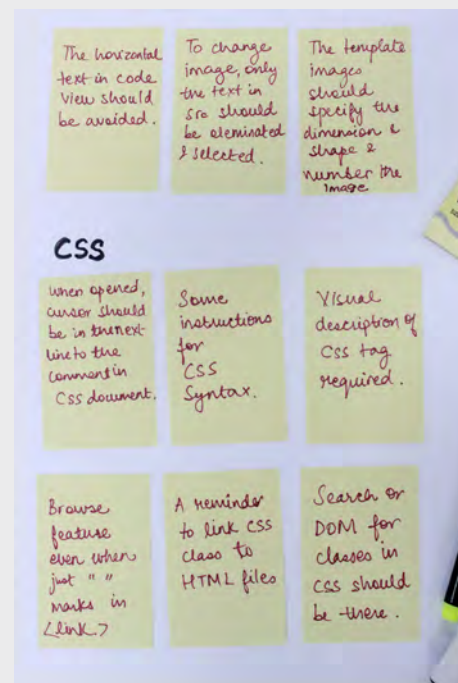 The horizontal
text in code
view should
be avoided.
To change
image, only
the text in
src should
be eleminated
& selected.
The template
images
should
specify the
dimension &
shape &
number the
image
CSS
when opened,
cursor should
be in the next
line to the
comment in
CSS document.
Some
instructions
for
CSS
Syntax.
Visual
description of
CSS tag
required.
Browse
feature
even when
just " "
marks in
<link.>
A reminder
to link CSS
class to
HTML files
Search or
DOM for
classes in
CSS should
be there.